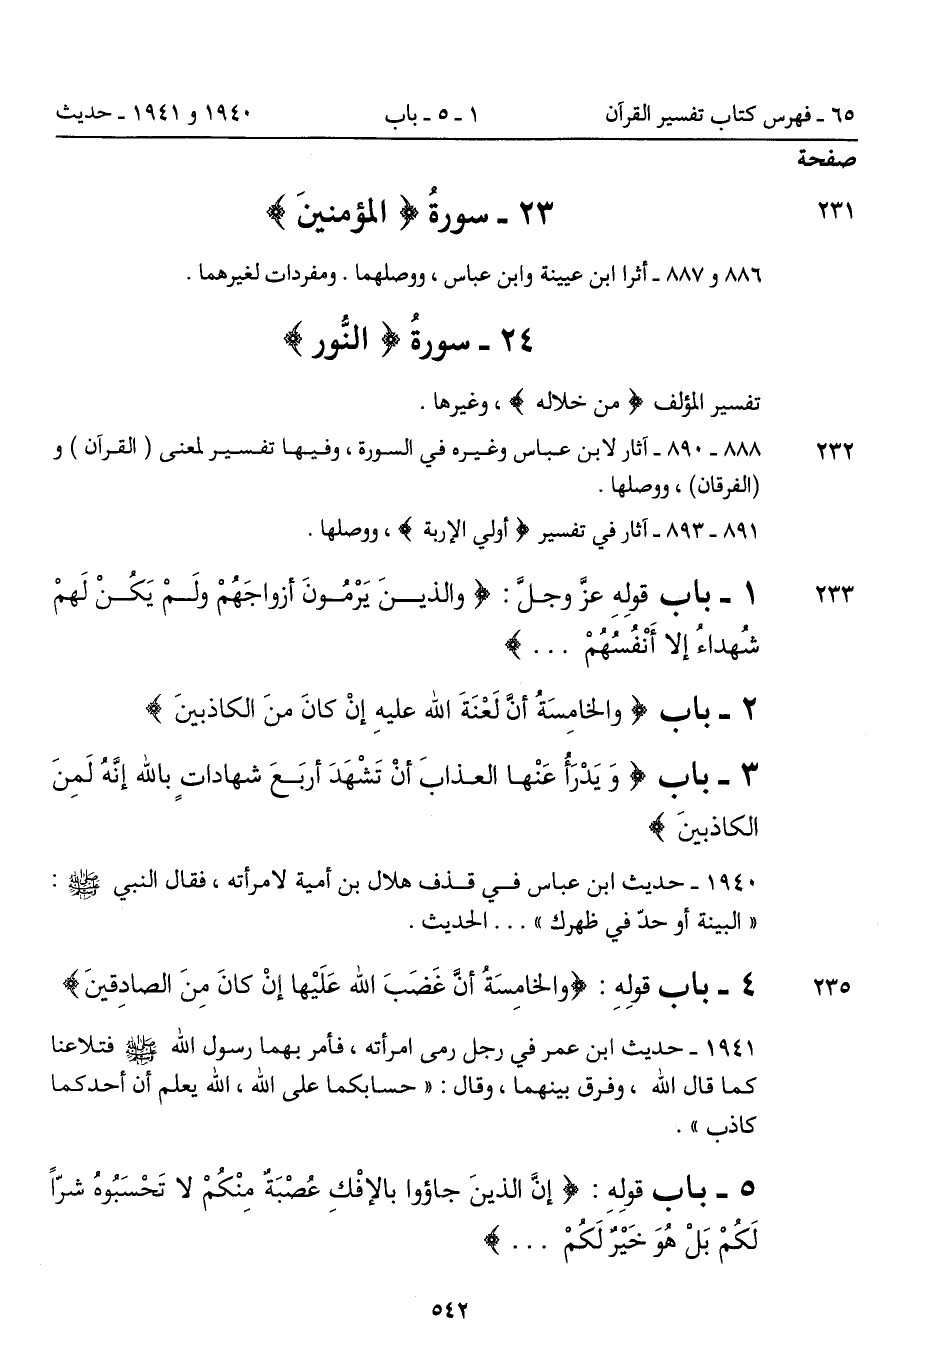 ٦٥ ـ فهرس كتاب تفسير القرآن ١ ـ ٥ ـ باب ١٩٤٠ و ١٩٤١ ـ حديث
صفحة
٢٣١ ٢٣ ـ سورةُ ﴿ المؤمنينَ ﴾
٨٨٦ و ٨٨٧ ـ أثرا ابن عيينة وابن عباس ، ووصلهما . ومفردات لغيرهما .
٢٤ ـ سورةُ ﴿ النُّور ﴾
تفسير المؤلف ﴿ من خلاله ﴾ ، وغيرها .
٢٣٢ ٨٨٨ ـ ٨٩٠ ـ آثار لابن عباس وغيره في السورة ، وفيها تفسير لمعنى ( القرآن ) و
(الفرقان) ، ووصلها .
٨٩١ ـ ٨٩٣ ـ آثار في تفسير ﴿ أولي الإربة ﴾ ، ووصلها .
٢٣٣ ١ ـ باب قولِهِ عزَّ وجلَّ : ﴿ والذينَ يَرْمُونَ أزواجَهُمْ ولَمْ يَكُنْ لَهمْ
شُهداءُ إلا أَنْفُسُهُمْ ... ﴾
٢ ـ باب ﴿ والخامِسَةُ أنَّ لَعْنَةَ الله عليهِ إنْ كانَ منَ الكاذبينَ ﴾
٣ ـ باب ﴿ وَيَدْرَأُ عَنْها العذابَ أنْ تَشْهَدَ أربَعَ شهاداتٍ بالله إنَّهُ لَمِنَ
الكاذبينَ ﴾
١٩٤٠ ـ حديث ابن عباس في قذف هلال بن أمية لامرأته ، فقال النبي ﷺ :
« البينة أو حدّ في ظهرك » ... الحديث .
٢٣٥ ٤ ـ باب قولِهِ : ﴿والخامِسَةُ أنَّ غَضَبَ الله عَلَيْها إنْ كانَ مِنَ الصادِقينَ﴾
١٩٤١ ـ حديث ابن عمر في رجل رمى امرأته ، فأمر بهما رسول الله ﷺ فتلاعنا
كما قال الله ، وفرق بينهما ، وقال : « حسابكما على الله ، الله يعلم أن أحدكما
كاذب » .
٥ ـ باب قولِهِ : ﴿ إنَّ الذينَ جاؤوا بالإفْكِ عُصْبَةٌ مِنْكُمْ لا تَحْسَبُوهُ شرّاً
لَكُمْ بَلْ هُوَ خَيْرٌ لَكُمْ ... ﴾
٥٤٢